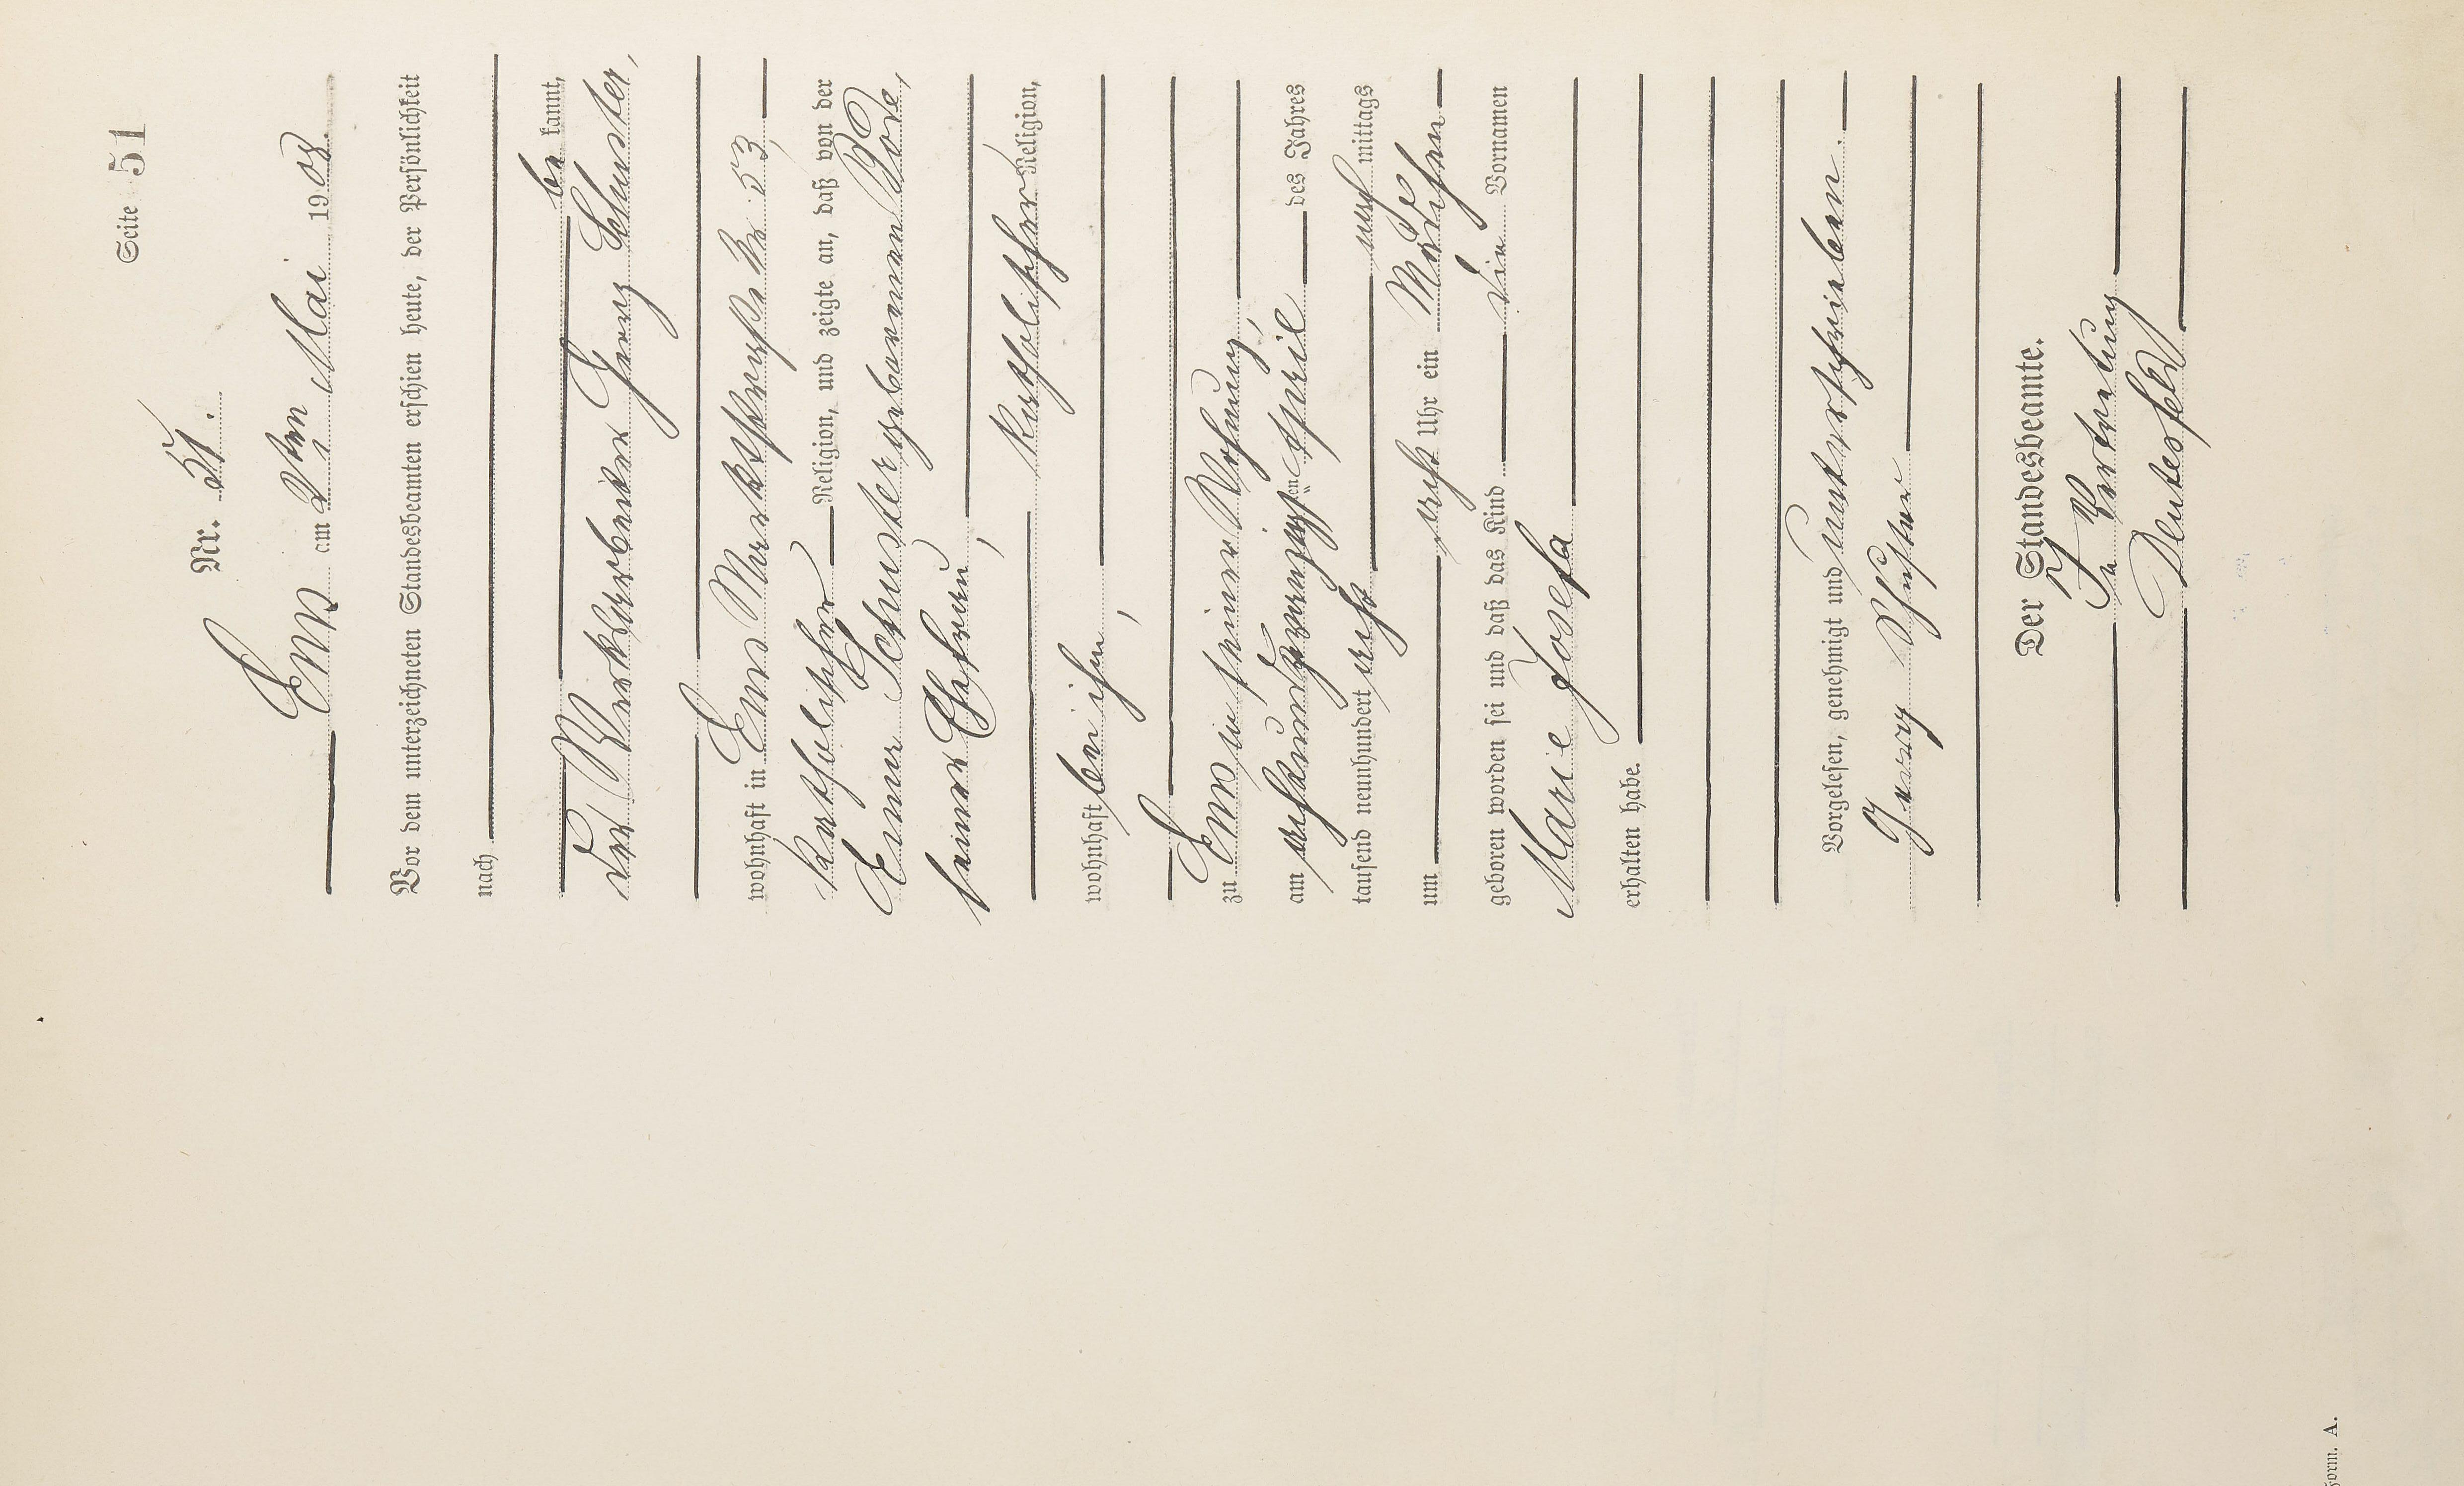 Seite 51
Nr. 51.
Ems am 2ten Mai 1908.
Vor dem unterzeichneten Standesbeamten erschien heute, der Persönlichkeit
nach
be kannt,
der Werkarbeiter Georg Schuster,
wohnhaft in Ems Marktstraße Nr. 53,
katholischer Religion, und zeigte an, daß von der
Emma Schuster geborenen Bode,
seiner Ehefrau,
katholischer Religion,
wohnhaft bei ihm,
zu Ems in seiner Wohnung,
am achtundzwanzigsten April des Jahres
tausend neunhundert acht nach mittags
um acht Uhr ein Mädchen
geboren worden sei und daß das Kind die Vornamen
Marie Josefa
erhalten habe.
Vorgelesen, genehmigt und unterschrieben.
Georg Schuster
Der Standesbeamte.
In Vertretung
Deutesfeld
Form. A.